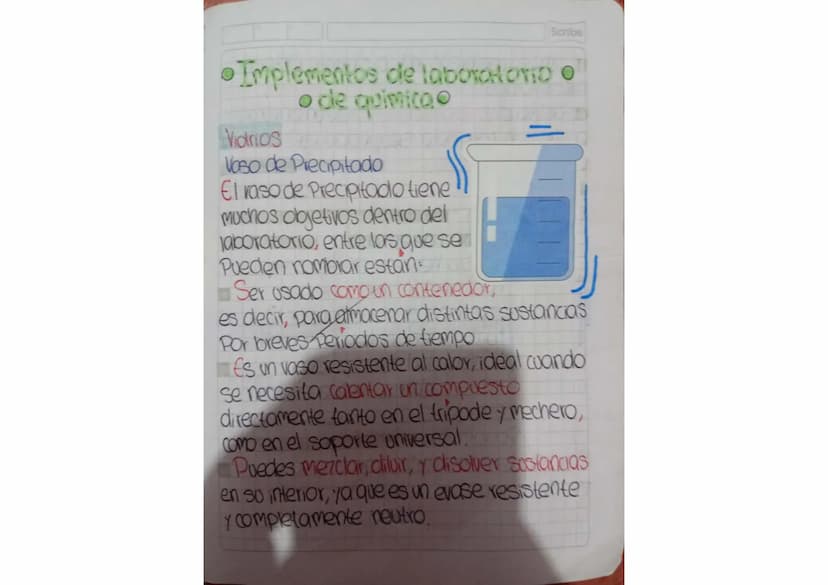 Scribe
Implementos de laboratorio
de química
Vidrios
Vaso de Precipitado
El vaso de Precipitado tiene
muchos objetivos dentro del
laboratorio, entre los que se
Pueden nombrar están:
Ser usado como un contenedor,
es decir, para almacenar distintas sustancias
Por breves Periodos de tiempo
Es un vaso resistente al calor, ideal cuando
se necesita calentar un compuesto
directamente tanto en el trípode y mechero,
como en el soporte universal.
Puedes mezclar, diluir, y disolver sustancias
en su interior, ya que es un evase resistente
y completamente neutro.